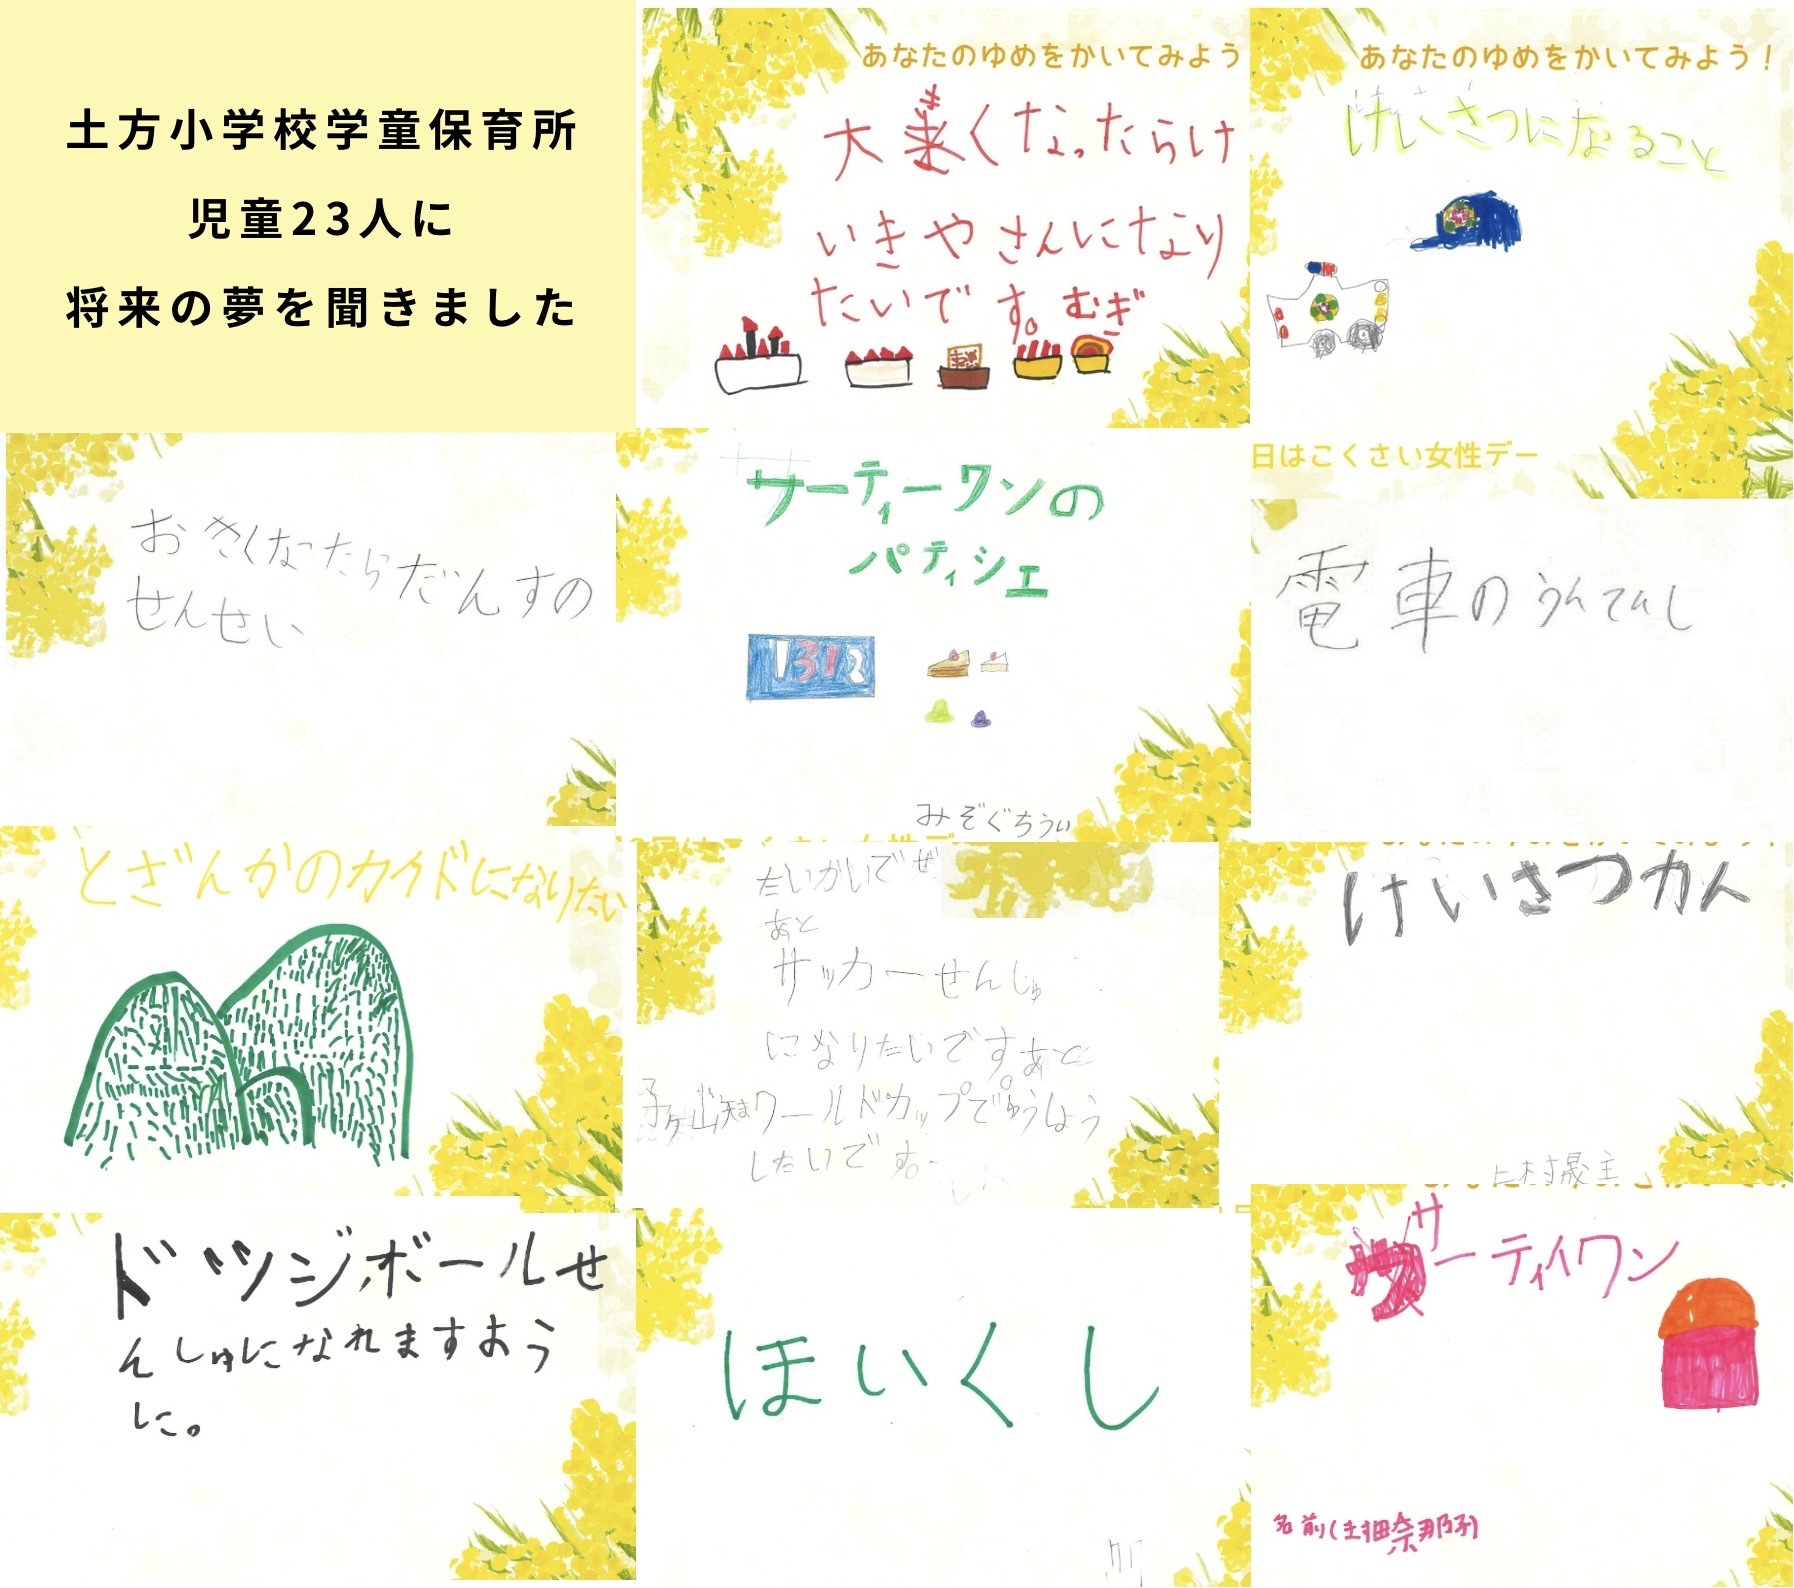 土方小学校学童保育所
児童23人に
将来の夢を聞きました
あなたのゆめをかいてみよう
大きくなったらけ
いきやさんになり
たいです。むぎ
あなたのゆめをかいてみよう！
けいさつになること
おきくなったらだんすの
せんせい
サーティーワンの
パティシエ
1312
みぞぐちうい
日はこくさい女性デー
電車のうんてんし
とざんかのガイドになりたい
たいかいでぜ
あと
サッカーせんしゅ
になりたいですあと
ワールドカップでゆうしょう
したいです。
けいさつかん
ドッジボールせ
んしゅになれますよう
に。
ほいくし
サーティイワン
名前(